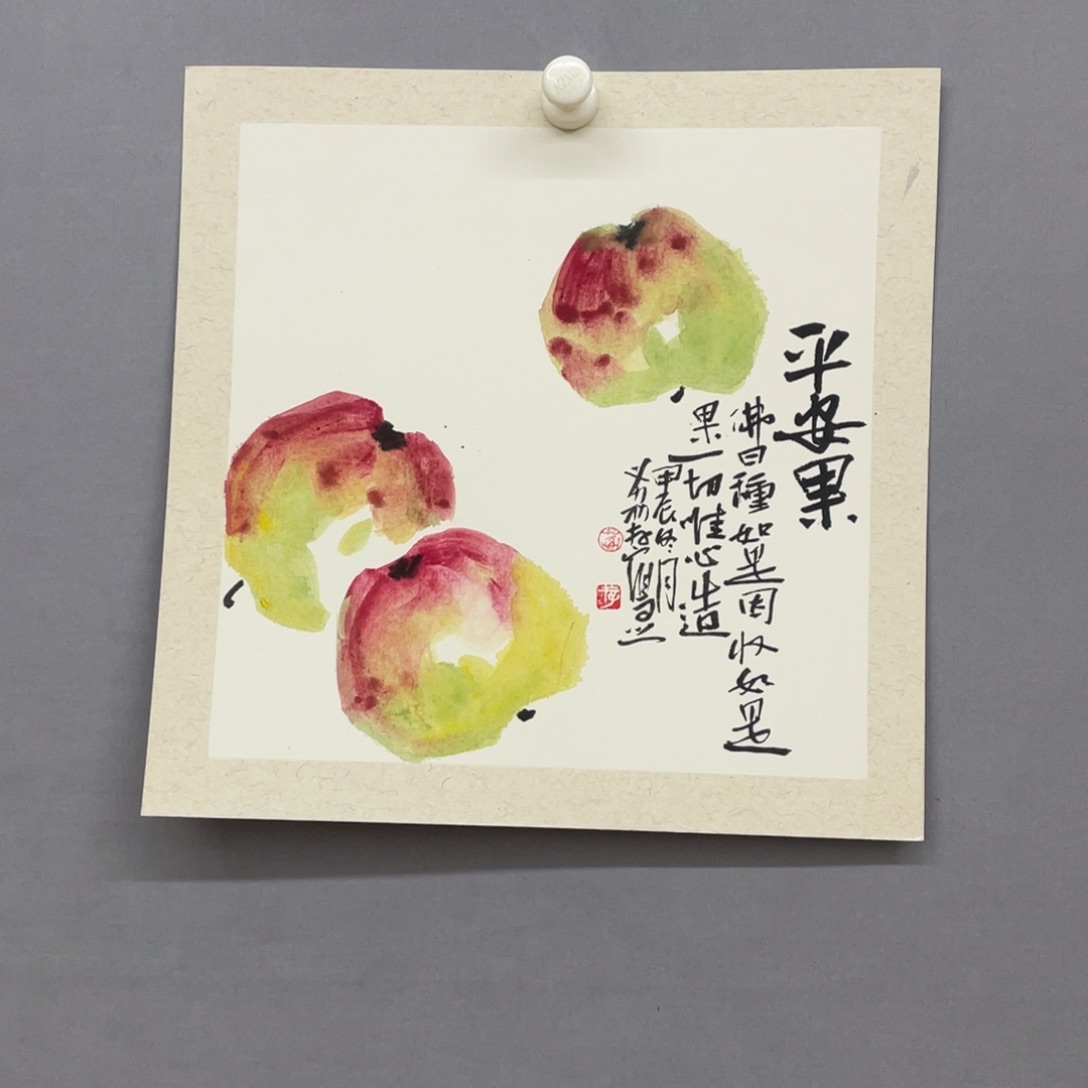 平安果
佛曰種如是因收如是
果一切惟心造
甲辰冬月